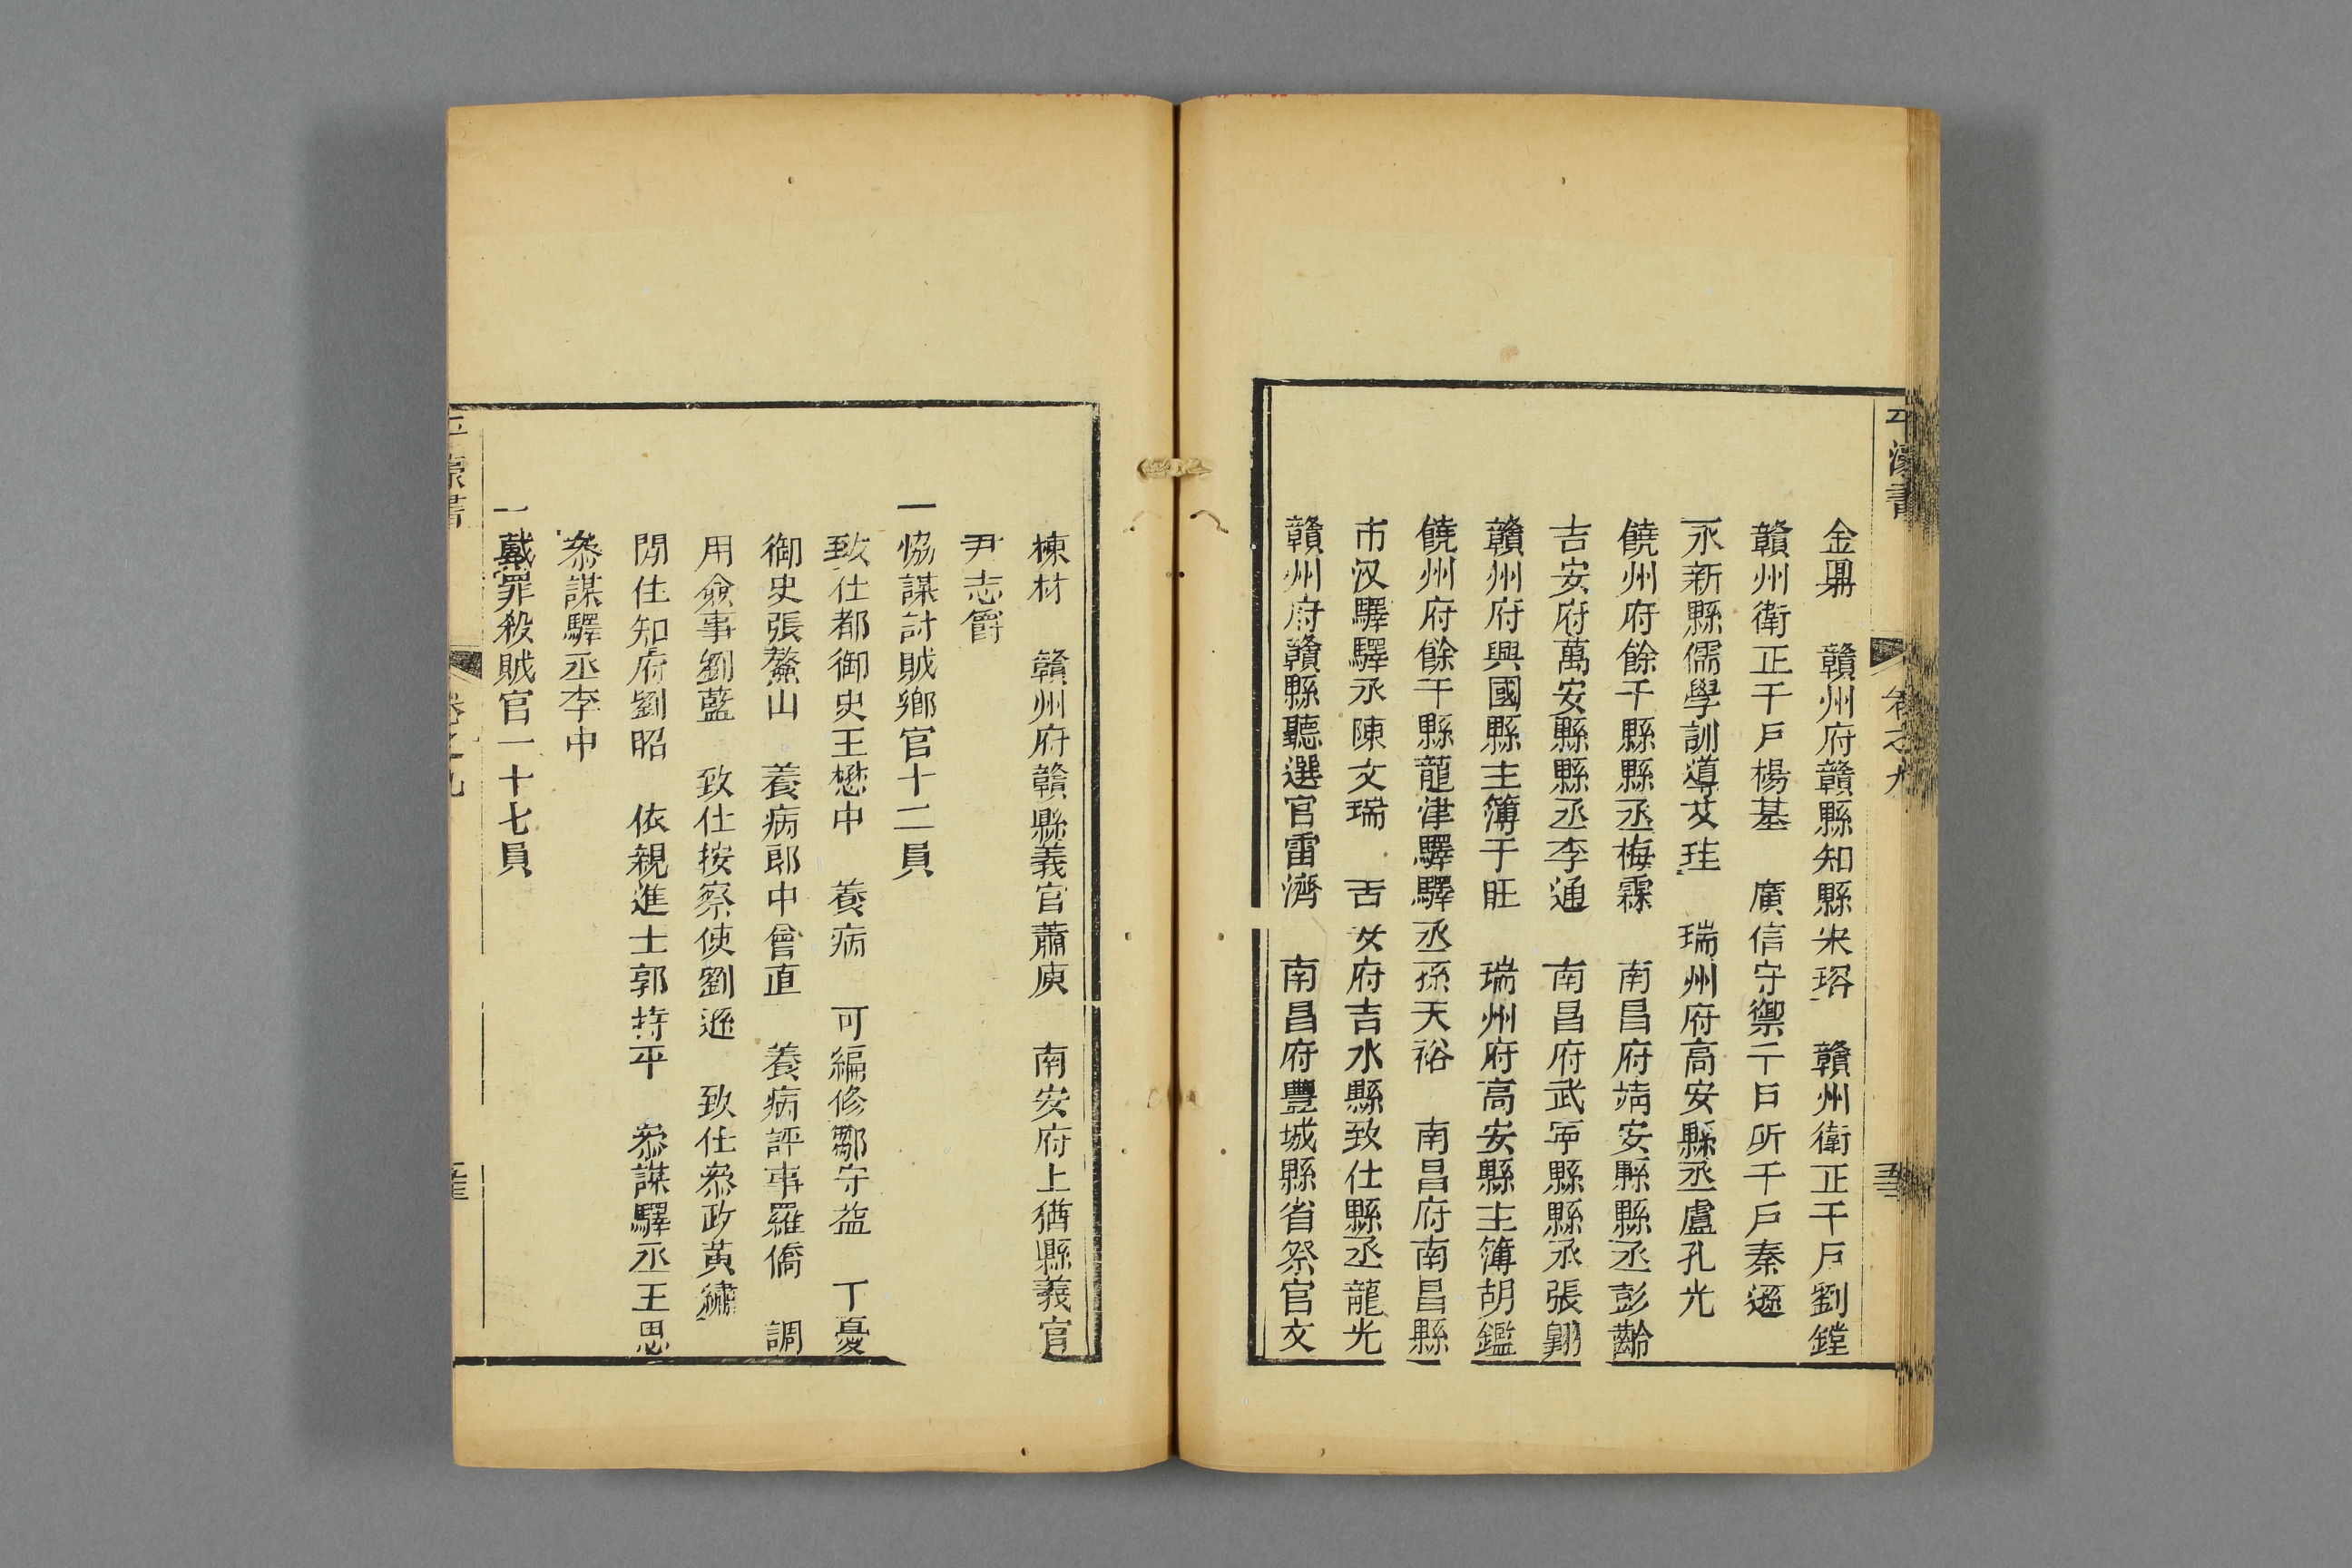 金鼎　贛州府贛縣知縣宋瑢　贛州衛正千戶劉鏜
贛州衛正千戶楊基　廣信守禦千戶所千戶秦遜
永新縣儒學訓導艾珪　瑞州府高安縣丞盧孔光
饒州府餘干縣縣丞梅霖　南昌府靖安縣縣丞彭齡
吉安府萬安縣縣丞李通　南昌府武寧縣縣丞張翱
贛州府興國縣主簿于旺　瑞州府高安縣主簿胡鑑
饒州府餘干縣龍津驛驛丞孫天裕　南昌府南昌縣
市汊驛驛丞陳文瑞　吉安府吉水縣致仕縣丞龍光
贛州府贛縣聽選官雷濟　南昌府豐城縣省祭官文
棟材　贛州府贛縣義官蕭庾　南安府上猶縣義官
尹志爵
一協謀討賊鄉官十二員
致仕都御史王懋中　養病　可編修鄒守益　丁憂
御史張鰲山　養病郎中曾直　養病評事羅僑　調
用僉事劉藍　致仕按察使劉遜　致仕叅政黃繡
閒住知府劉昭　依親進士郭持平　叅謀驛丞王思
叅謀驛丞李中
一戴罪殺賊官一十七員
卷之九